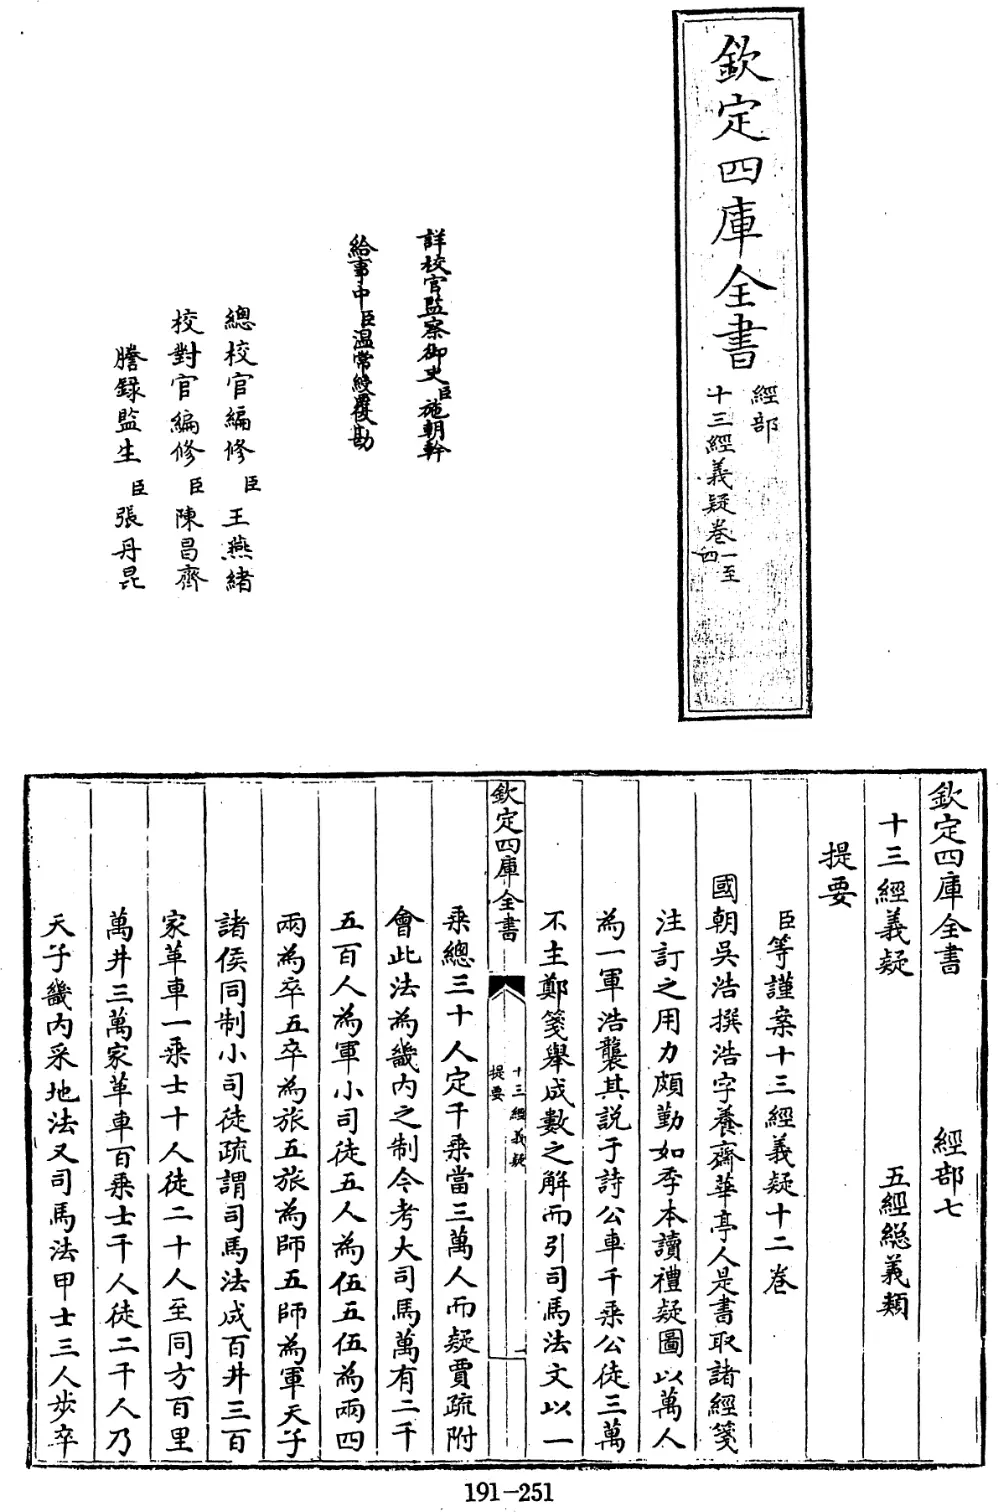 欽定四庫全書
經部
十三經義疑卷一至四
詳校官監察御史臣施朝幹
給事中臣溫常綬覆勘
總校官編修臣王燕緒
校對官編修臣陳昌齊
謄錄監生臣張丹昆
欽定四庫全書 經部七
十三經義疑 五經總義類
提要
臣等謹案十三經義疑十二卷
國朝吳浩撰浩字養齋華亭人是書取諸經箋
注訂之用力頗勤如季本讀禮疑圖以萬人
為一軍浩襲其説于詩公車千乘公徒三萬
不主鄭箋舉成數之解而引司馬法文以一
欽定四庫全書
十三經義疑
提要
一
乘總三十人定千乘當三萬人而疑賈疏附
會此法為畿内之制今考大司馬萬有二千
五百人為軍小司徒五人為伍五伍為兩四
兩為卒五卒為旅五旅為師五師為軍天子
諸侯同制小司徒疏謂司馬法成百井三百
家革車一乘士十人徒二十人至同方百里
萬井三萬家革車百乘士千人徒二千人乃
天子畿内采地法又司馬法甲士三人步卒
191-251